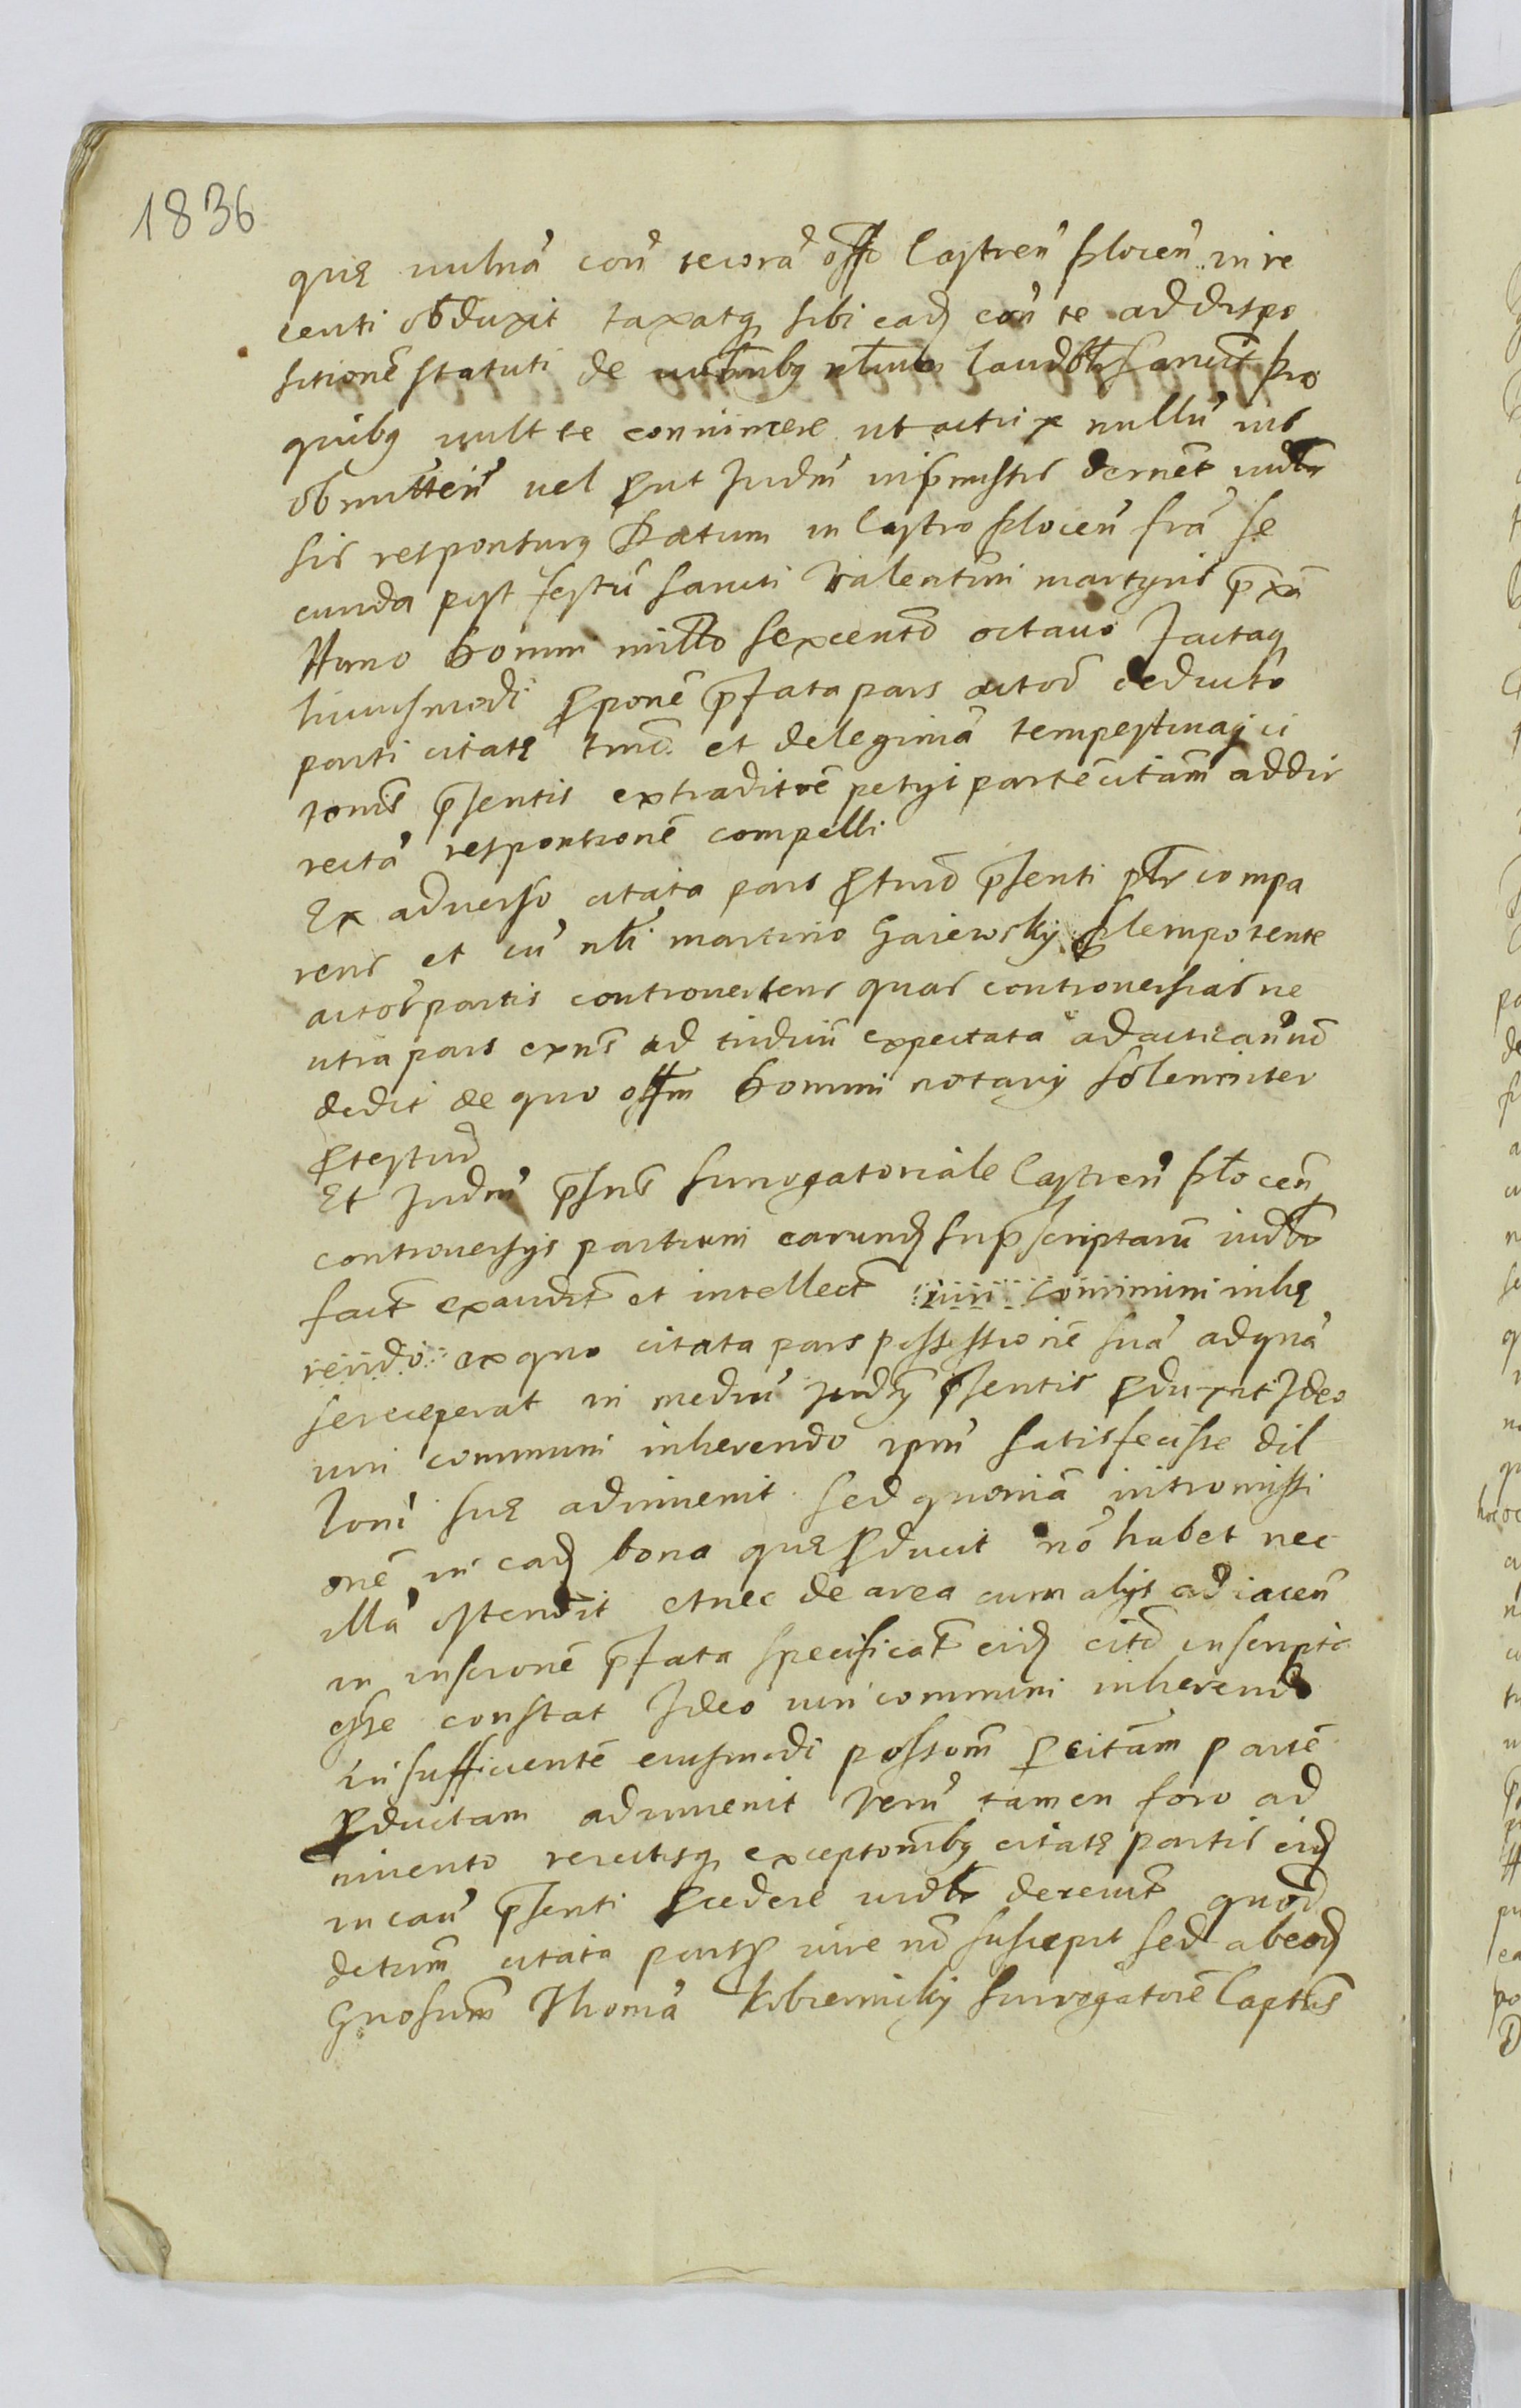 1836
quę vulnã coñ te corã offo Castreñ Plocen̄ in re
centi obduxit taxatq sibi eadz coñ te ad dispo
sitionẽ statuti de vulnibq laudbtr sancit pro
quibq vult te convincere ut actrix nullũ ius
obmitten̄ vel put Judm̄ in pmissis decrnet iudtr
sis responsurq Datum in Castro Plocen̄ fra se
cunda post festũ sancti Valentini martyris pxã
Anno Domini millo sexcento octavo Factaq
huiusmodi pponẽ pfata pars actor deducto
parti citatę tmo et de legimã tempestivaq ci
tonis psentis extraditoẽ petyt partẽ citam ad dir
rectã responsionẽ compelli
Ex adverso citata pars ptmo psenti ptr compa
rens et cũ nbli Martino Gaiewsky plenipotente
actor partis controvertens quas controversias ne
utra pars exns ad iudiciũ expectata ad acticañ nõ
dedit de quo offm Domini notarij solenniter
ptestud
Et Judm̄ psns surrogatoriale Castren̄ Plocen̄
controversys partium earundz supscriptarũ iudtr
fact exaudit et intellect iuri communi inhę
rendo ex quo citata pars possessionẽ suã ad quã
se receperat in mediũ judij psentis pduxit Ideo
iuri communi inherendo ipm̄ satisfecisse dil
toni suę adinvenit sed quoniã intromissi
onẽ in eadz bona quę pducit nõ habet nec
illã ostendit et nec de area cum alys adiacen̄
in inscronẽ pfata specificat eidz cito inscripta
esse constat Ideo iuri communi inherendo
insufficientẽ eiusmodi possom p citam partẽ
pductam adinvenit Verũ tamen foro ad
invento reiectisq exceptombq citatę partis eidz
in cau psenti pcedere iudtr decrevit quod
detum citata pars p iure nõ suscepit sed ab eodz
Gnosum Thomã Kobiernicky surrogatorẽ Captlis